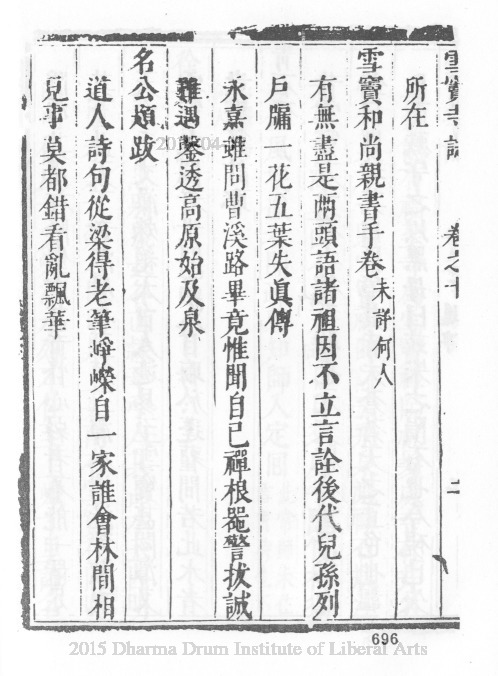 雪竇寺誌 卷之十
所在
雪竇和尚親書手卷 未詳何人
有無盡是兩頭語諸祖因不立言詮後代兒孫列
戶牖一花五葉失眞傳
永嘉雖問曹溪路畢竟惟聞自己禪根器警拔誠
難遇鑿透高原始及泉
名公題跋
道人詩句從梁得老筆崢嶸自一家誰會林間相
見事莫都錯看亂飄華
二
696
2015 Dharma Drum Institute of Liberal Arts